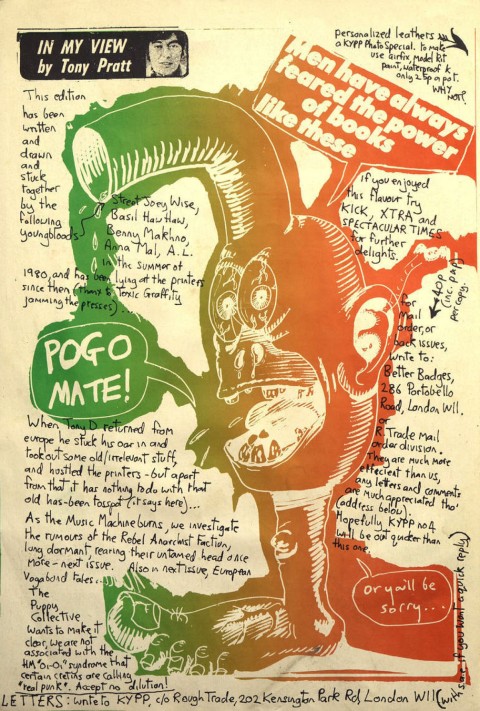 IN MY VIEW
by Tony Pratt
personalized leathers
a KYPP Photo Special. to make
use airfix, model kit
paint, waterproof &
only 25p a pot.
WHY
NOT?
Men have always
feared the power
of books
like these
This edition
has been
written
and
drawn
and
stuck
together
by the
following
youngbloods
Street Joey Wise,
Basil Hawhaw,
Benny Makhno,
Anna Mal, A.L.
in the summer of
1980, and has been lying at the printers
since then (thanx to Toxic Graffity
jamming the presses)...
If you enjoyed
this flavour try
KICK, XTRA and
SPECTACULAR TIMES
for further
delights.
40p
(inc. p&p)
per copy.
for
mail
order, or
back issues,
write to:
Better Badges,
286 Portobello
Road, London W11.
or
R. Trade mail
order division.
They are much more
effecient than us,
any letters and comments
are much appreciated tho'
(address below).
Hopefully KYPP no4
will be out quicker than
this one.
POGO
MATE!
When Tony D returned from
europe he stuck his oar in and
took out some old/irrelevant stuff,
and hustled the printers - but apart
from that it has nothing to do with that
old has-been tosspot (it says here)...
As the Music Machine burns, we investigate
the rumours of the Rebel Anarchist Faction,
long dormant, rearing their untamed head once
more - next issue. Also in next issue, European
Vagabond tales....
The
Puppy
Collective
wants to make it
clear, we are not
associated with the
HM "Oi-Oi" syndrome that
certain cretins are calling
"real punk". Accept no dilution!
or you'll be
sorry...
LETTERS: write to KYPP, c/o Rough Trade, 202 Kensington Park Rd, London W11
(with s.a.e. if you want a quick reply)